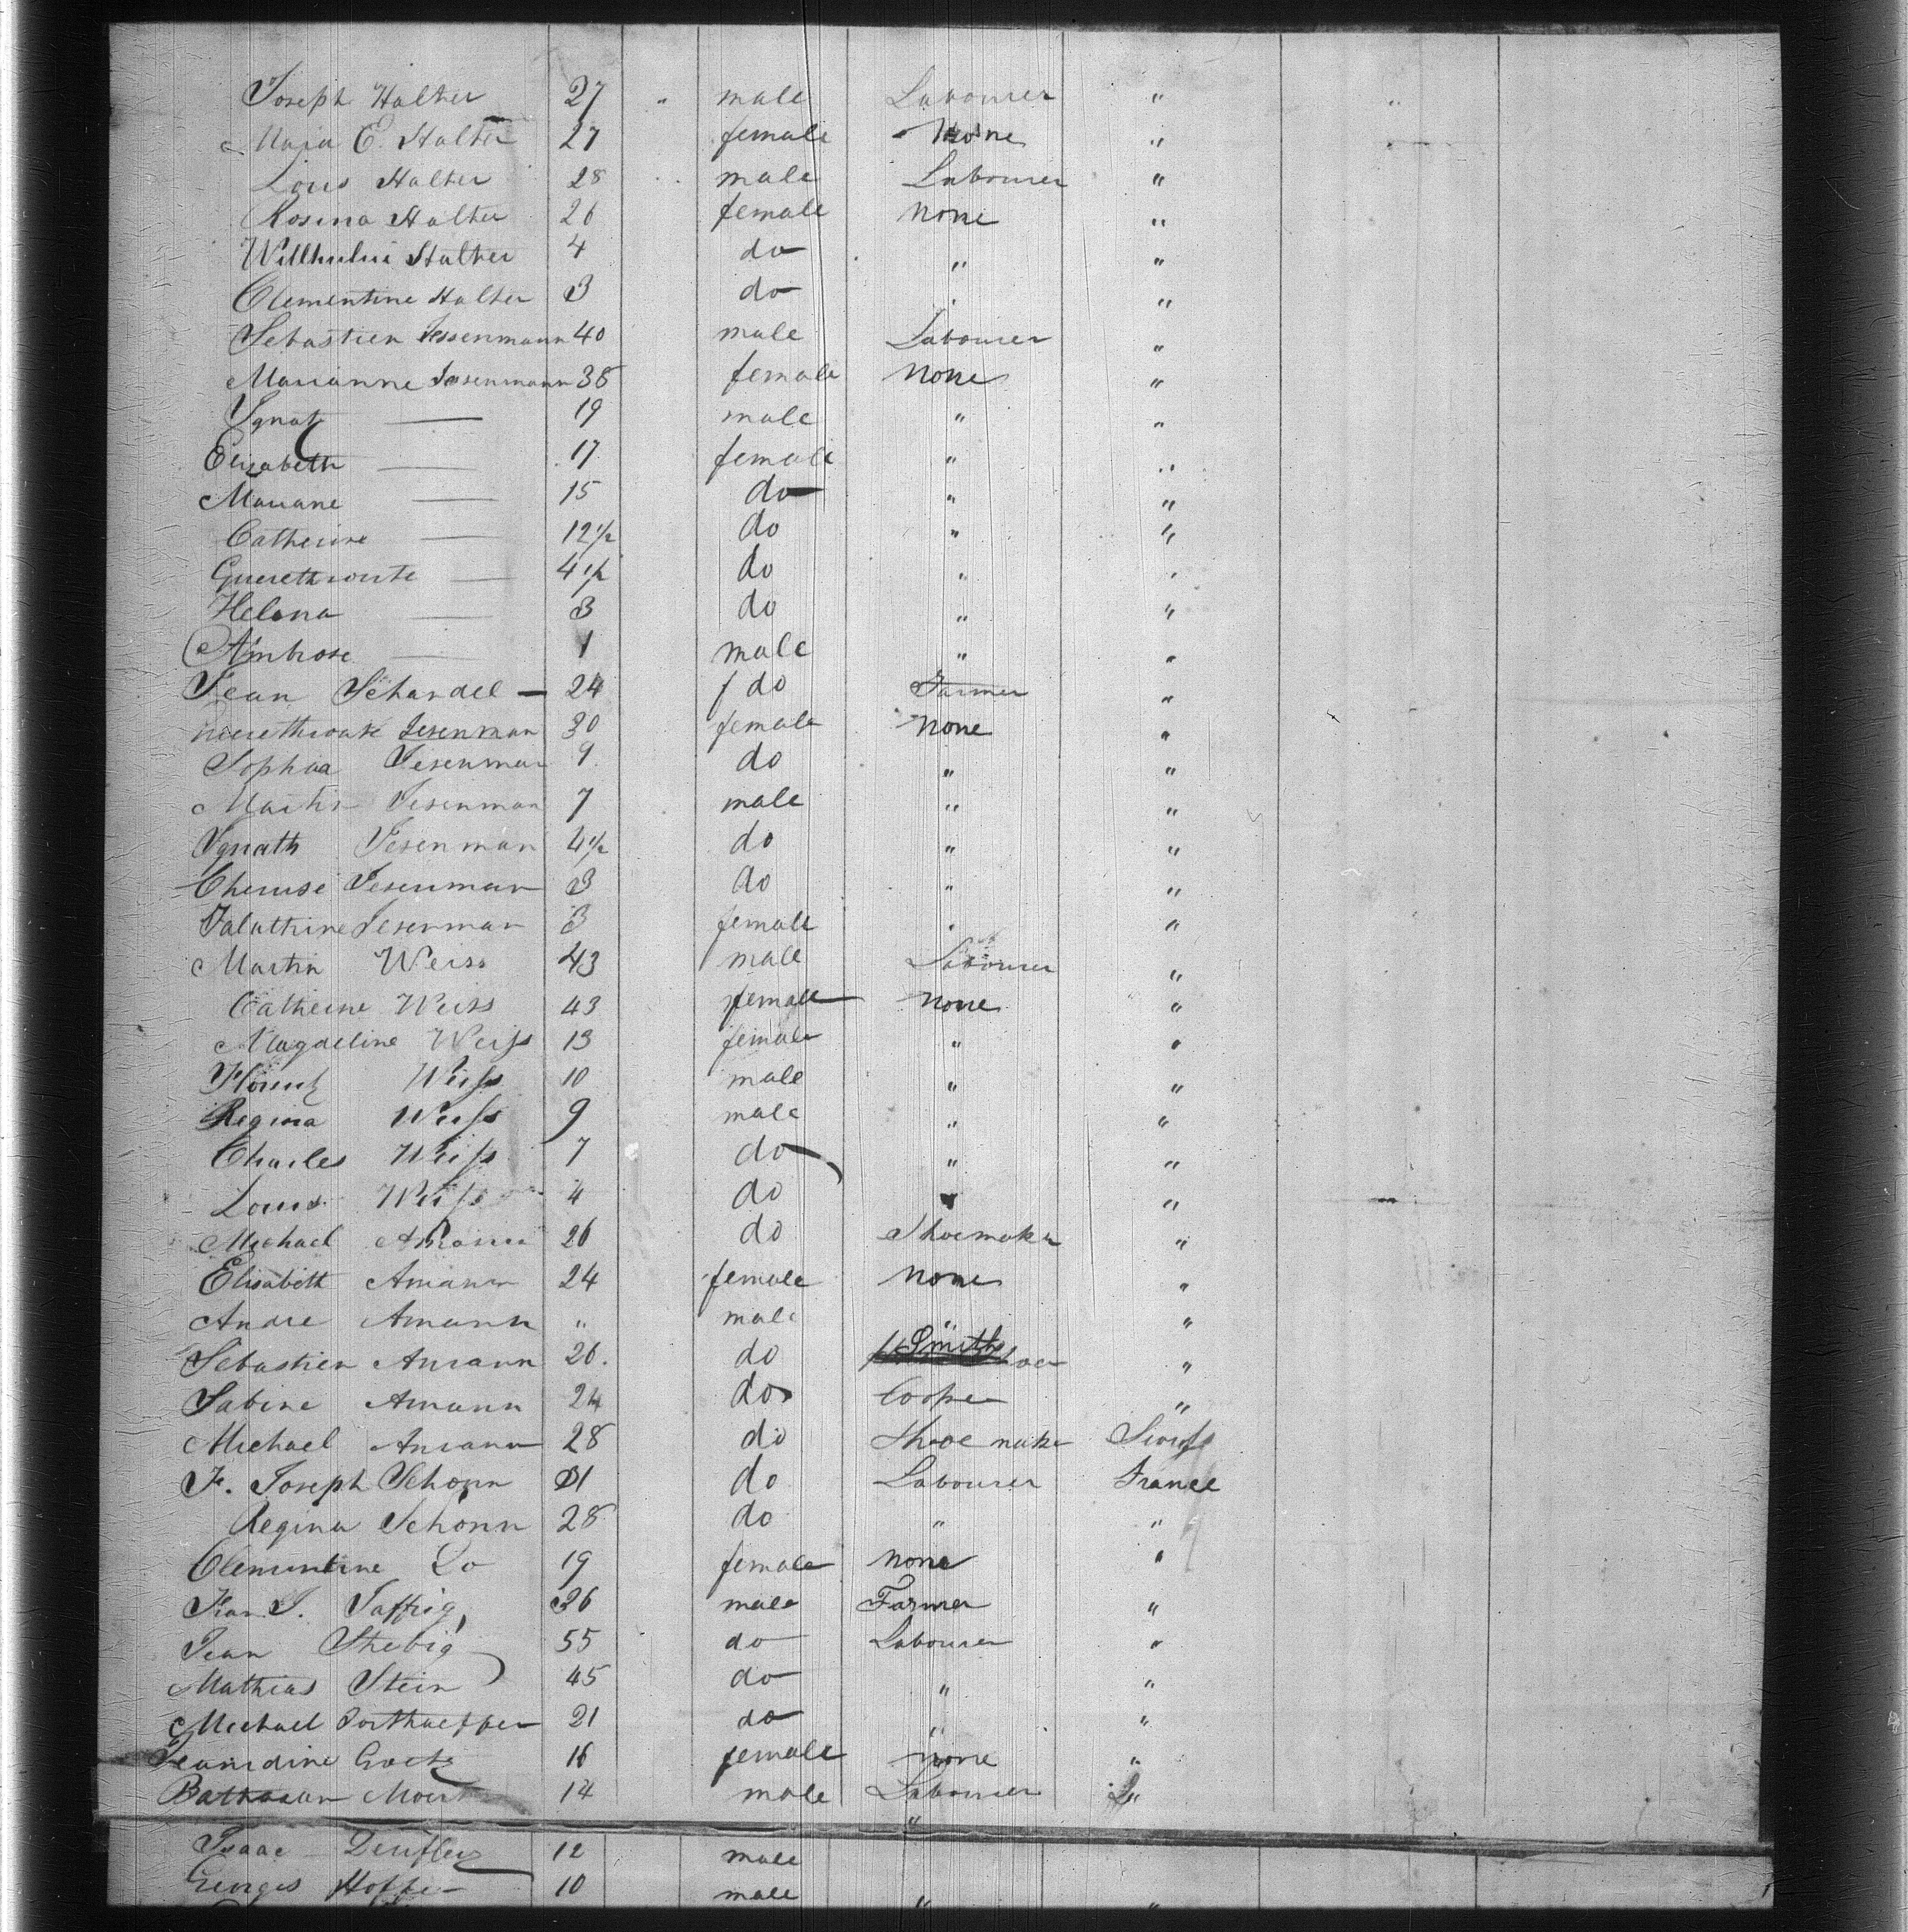 Joseph Halter 27 " male Labourer " "
Maria E. Halter 27 female None "
Louis Halter 28 male Labourer "
Rosina Halter 26 female none "
Halter 4 do " "
Clementine Halter 3 do " "
Sebastien Iessenmann 40 male Labourer "
Marianne Iessenmann 38 female none "
Ignatz — 19 male " "
Elisabeth — 17 female " "
Mariane — 15 do " "
Catherine — 12 1/2 do " "
— 4 1/2 do " "
Helena — 3 do " "
Ambrose — 1 male " "
Jean Schandel — 24 do Farmer "
Iesenman 30 female none "
Sophia Iesenman 9 do " "
Martin Iesenman 7 male " "
Ignath Iesenman 4 1/2 do " "
Iesenman 3 do " "
Iesenman 3 female " "
Martin Weiss 43 male Labourer "
Catherine Weiss 43 female none "
Magdeline Weiss 13 female " "
Florentz Weiss 10 male " "
Regina Weiss 9 male " "
Charles Weiss 7 do " "
Louis Weiss 4 do " "
Michael Amann 26 do Shoemaker "
Elisabeth Amann 24 female none "
Andre Amann " male " "
Sebastien Amann 26. do Smiths "
Sabine Amann 24 do Cooper "
Michael Amann 28 do Shoe maker
F. Joseph Schonn 31 do Labourer France
Regina Schonn 28 do " "
Clementine Do 19 female none "
Jean J. Taffrig 36 male Farmer "
Jean Strebig 55 do Labourer "
Mathias Stein 45 do " "
Michael 21 do " "
Goetz 16 female none "
14 male Labourer "
"
Isaac 12 male
Georges Hoffe 10 male " "